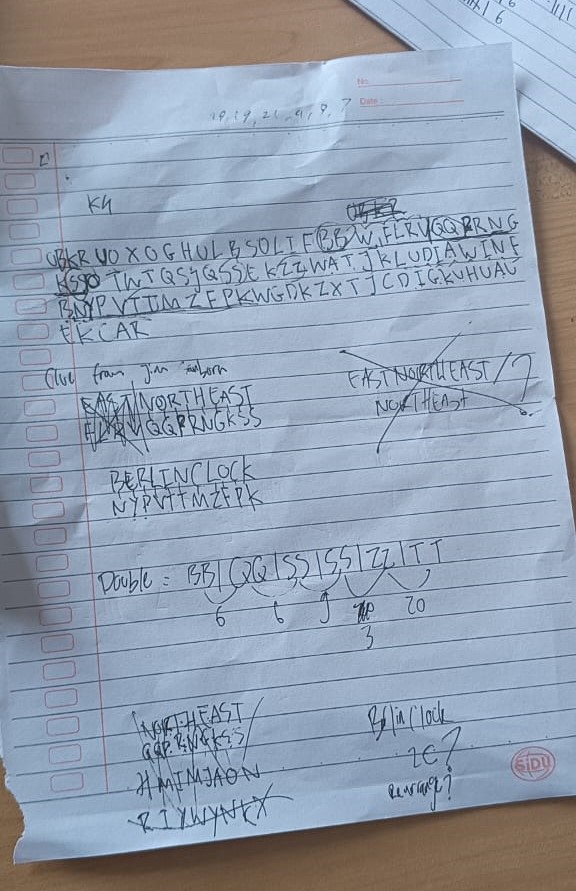 No.
Date:
K4
OBKRUOXOGHULBSOLIFBBWFLRVQQPRNG
KSSOTWTQSJQSSEKZZWATJKLUDIAWINF
BNYPVTTMZFPKWGDKZXTJCDIGKUHUAU
EKCAR
Clue from Jim Sanborn
EAST NORTHEAST
FLRV QQPRNGKSS
EASTNORTHEAST/?
NORTHEAST
BERLINCLOCK
NYPVTTMZFPK
Double = BB|QQ|SS|SS|ZZ|TT
6 6 9 20
3
NORTHEAST
QQPRNGKSS
HMIMJAON
RIYWYNKX
Berlin Clock
?
Rearrange?
SiDU